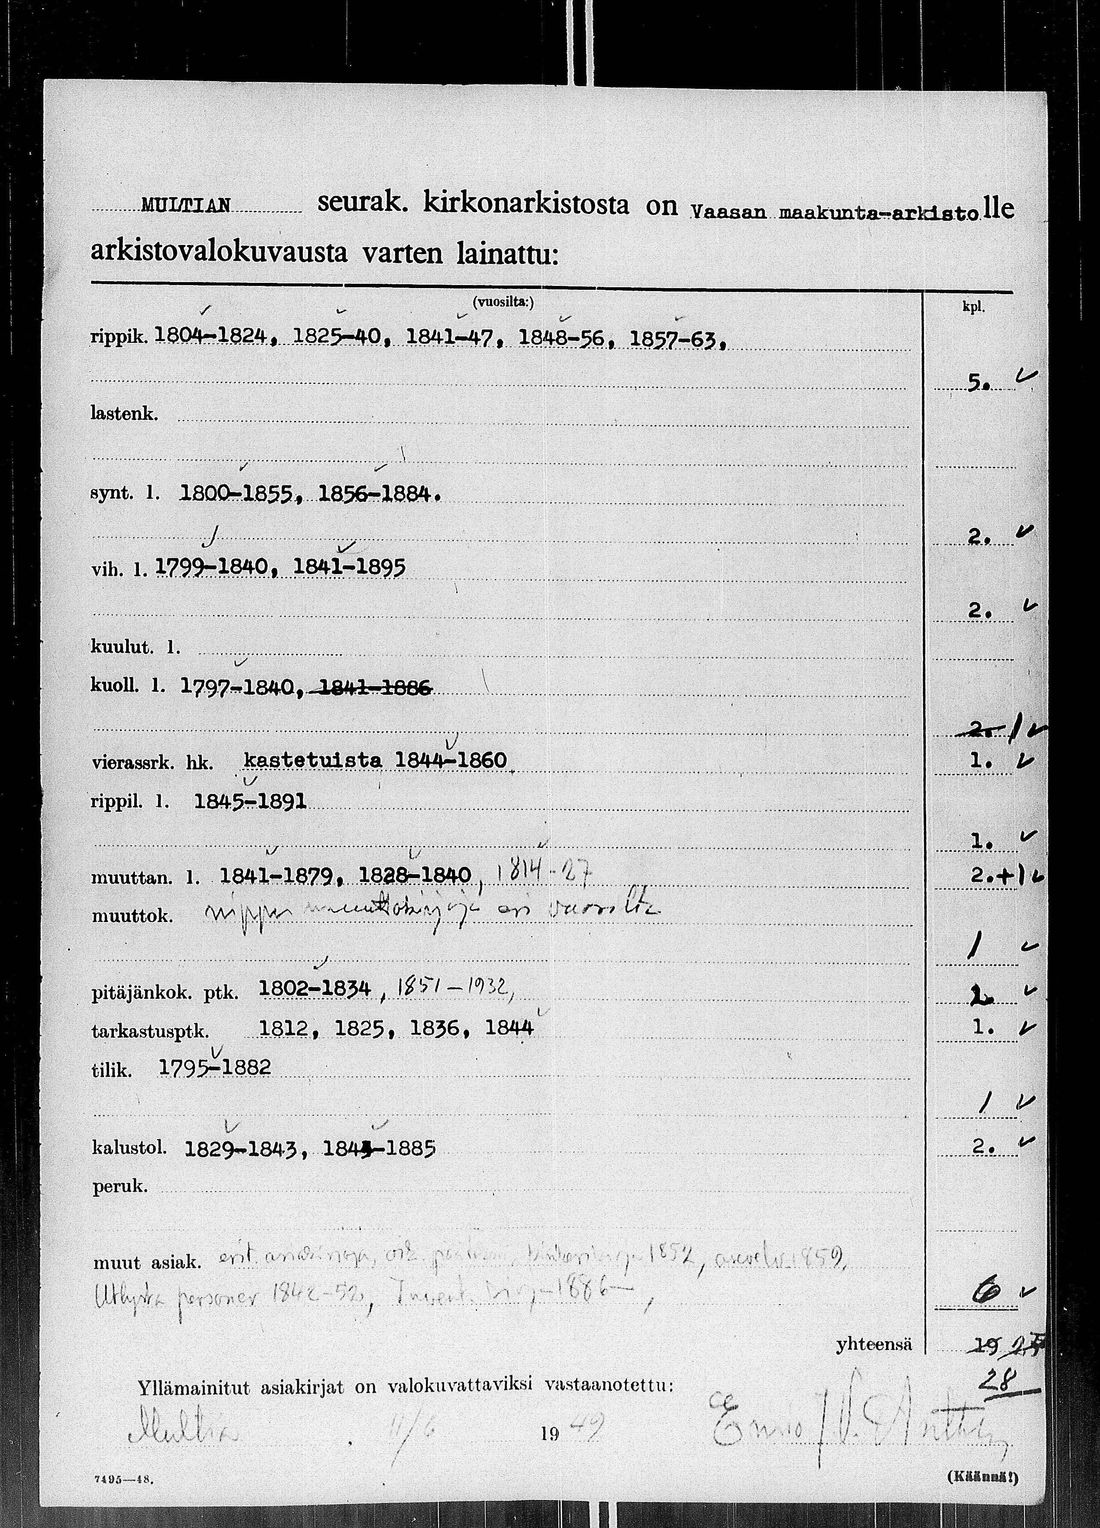 MULTIAN seurak. kirkonarkistosta on Vaasan maakunta-arkistolle
arkistovalokuvausta varten lainattu:
(vuosilta:) kpl.
rippik. 1804-1824, 1825-40, 1841-47, 1848-56, 1857-63,
5. ✓
lastenk.
synt. l. 1800-1855, 1856-1884.
2. ✓
vih. l. 1799-1840, 1841-1895
2. ✓
kuulut. l.
kuoll. l. 1797-1840, 1841-1886
2. 1 ✓
vierassrk. hk. kastetuista 1844-1860 1. ✓
rippil. l. 1845-1891
1. ✓
muuttan. l. 1841-1879, 1828-1840, 1814-27 2.+1 ✓
muuttok. nippu muuttokirjoja eri vuosilta
1 ✓
pitäjänkok. ptk. 1802-1834, 1851-1932, 2. ✓
tarkastusptk. 1812, 1825, 1836, 1844 1. ✓
tilik. 1795-1882
1 ✓
kalustol. 1829-1843, 1843-1885 2. ✓
peruk.
muut asiak. erit. 1852, 1859,
personer 1842-52, Invent. 1886 6 ✓
yhteensä 19 25
28
Yllämainitut asiakirjat on valokuvattaviksi vastaanotettu:
Multia 11/6 1949
7495—48. (Käännä!)